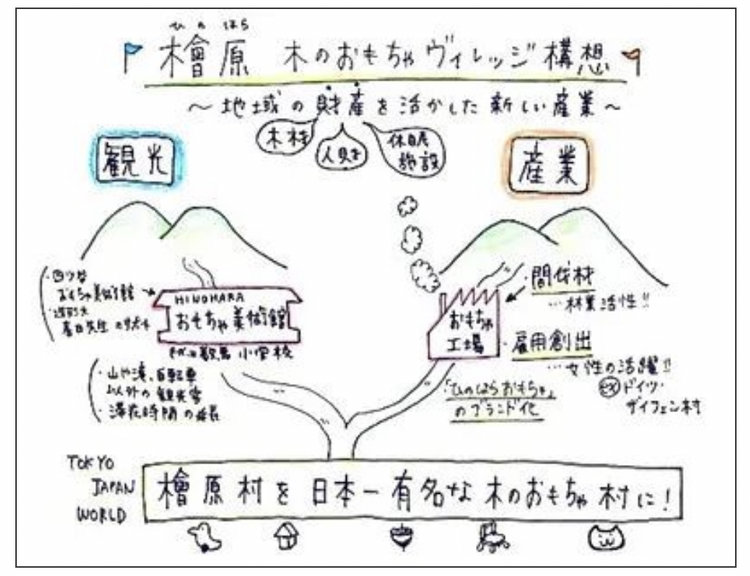 ひの はら
檜原 木のおもちゃヴィレッジ構想
〜地域の財産を活かした新しい産業〜
木材
人財
休眠
施設
観光
産業
・四ツ谷
おもちゃ美術館
春日先生のサポート
HINOHARA
おもちゃ美術館
数馬小学校
・山や滝、自転車
以外の観光客
・滞在時間の延長
おもちゃ
工場
・間伐材
…林業活性!!
・雇用創出
…女性の活躍!!
ex ドイツ・
ザイフェン村
「ひのはらおもちゃ」
のブランド化
TOKYO
JAPAN
WORLD
檜原村を日本一有名な木のおもちゃ村に!